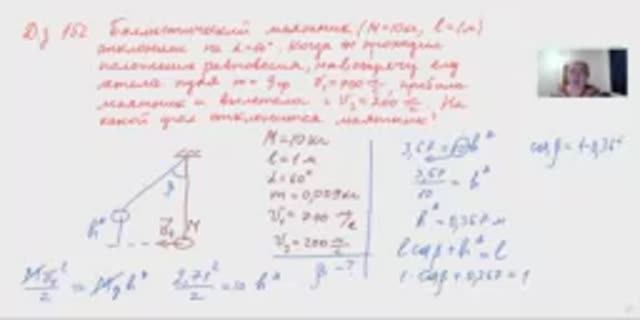 Д/з 152 Баллистический маятник (M=10кг, l=1м)
отклонили на α=60°. Когда он проходил
положение равновесия, навстречу ему
летела пуля m=9гр V₁=700 м/с, пробила
маятник и вылетела с V₂=200 м/с. На
какой угол отклонится маятник?
M=10кг
l=1м
α=60°
m=0,009кг
V₁=700 м/с
V₂=200 м/с
β-?
h*
β
M
h* = 0,367м
l cosβ + h* = l
1·cosβ + 0,367 = 1
cosβ = 1-0,367